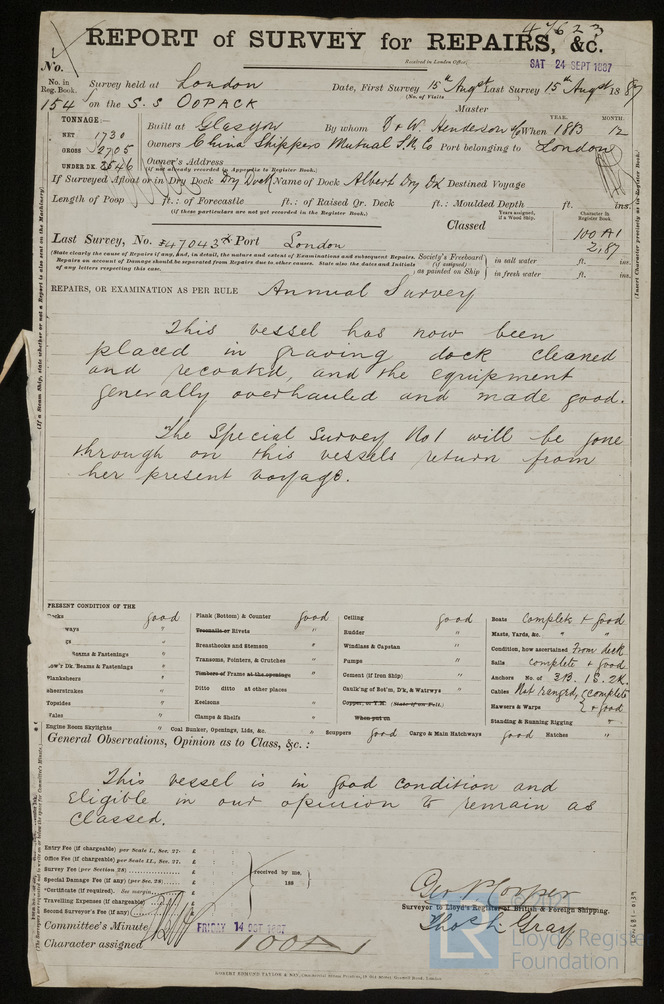 47623
REPORT of SURVEY for REPAIRS, &c.
Received in London Office
SAT 24 SEPT 1887
No.
No. in Reg. Book.
154
Survey held at London
Date, First Survey 15th Augst Last Survey 15th Augst 1887
(No. of Visits
on the S.S OOPACK
Master
TONNAGE:—
NET 1730
GROSS 2705
UNDER DK. 2546
Built at Glasgow By whom D & W. Henderson & Co When 1883 12
YEAR. MONTH.
Owners China Shippers Mutual S.N. Co Port belonging to London
Owner's Address
(if not already recorded in Appendix to Register Book.)
If Surveyed Afloat or in Dry Dock Dry Dock Name of Dock Albert Dry Dk Destined Voyage
Length of Poop ft.: of Forecastle ft.: of Raised Qr. Deck ft.: Moulded Depth ft. ins.
(if these particulars are not yet recorded in the Register Book.)
Classed
Years assigned, if a Wood Ship.
Character in Register Book.
100A1
2,87
Last Survey, No. 47043 Port London
(State clearly the cause of Repairs if any, and, in detail, the nature and extent of Examinations and subsequent Repairs.
Repairs on account of Damage should be separated from Repairs due to other causes. State also the dates and Initials
of any letters respecting this case.
Society's Freeboard (if assigned) as painted on Ship
in salt water ft. ins.
in fresh water ft. ins.
REPAIRS, OR EXAMINATION AS PER RULE Annual Survey
This vessel has now been
placed in graving dock cleaned
and recoated, and the equipment
generally overhauled and made good.
The Special Survey No1 will be gone
through on this vessels return from
her present voyage.
PRESENT CONDITION OF THE
Decks good
ways "
gs "
Beams & Fastenings "
Low'r Dk. Beams & Fastenings "
Planksheers "
Sheerstrakes "
Topsides "
Wales "
Engine Room Skylights "
Plank (Bottom) & Counter good
Treenails or Rivets "
Breasthooks and Stemson "
Transoms, Pointers, & Crutches "
Timbers of Frame at the openings "
Ditto ditto at other places "
Keelsons "
Clamps & Shelfs "
Coal Bunker, Openings, Lids, &c. "
Ceiling good
Rudder "
Windlass & Capstan "
Pumps "
Cement (if Iron Ship) "
Caulk'ng of Bot'm, D'k, & Watrwys "
Copper, or Y.M. (State if on Felt.)
When put on
Scuppers good Cargo & Main Hatchways good Hatches "
Boats Complete & good
Masts, Yards, &c. " "
Condition, how ascertained From deck
Sails complete & good
Anchors No. of 3B. 1S. 2K.
Cables Not ranged, complete
Hawsers & Warps & good
Standing & Running Rigging "
General Observations, Opinion as to Class, &c.:
This vessel is in good condition and
Eligible in our opinion to remain as
Classed.
Entry Fee (if chargeable) per Scale I., Sec. 27. £
Office Fee (if chargeable) per Scale II., Sec. 27. £
Survey Fee (per Section 28) £
Special Damage Fee (if any) (per Sec. 28) £
*Certificate (if required). See margin. £
Travelling Expenses (if chargeable) £
Second Surveyor's Fee (if any) £
received by me, 188
Geo P Cooper
Surveyor to Lloyd's Register of British & Foreign Shipping.
Thos H. Gray
Committee's Minute FRIDAY 14 OCT 1887
Character assigned 100A1
LR
Lloyd's Register
Foundation